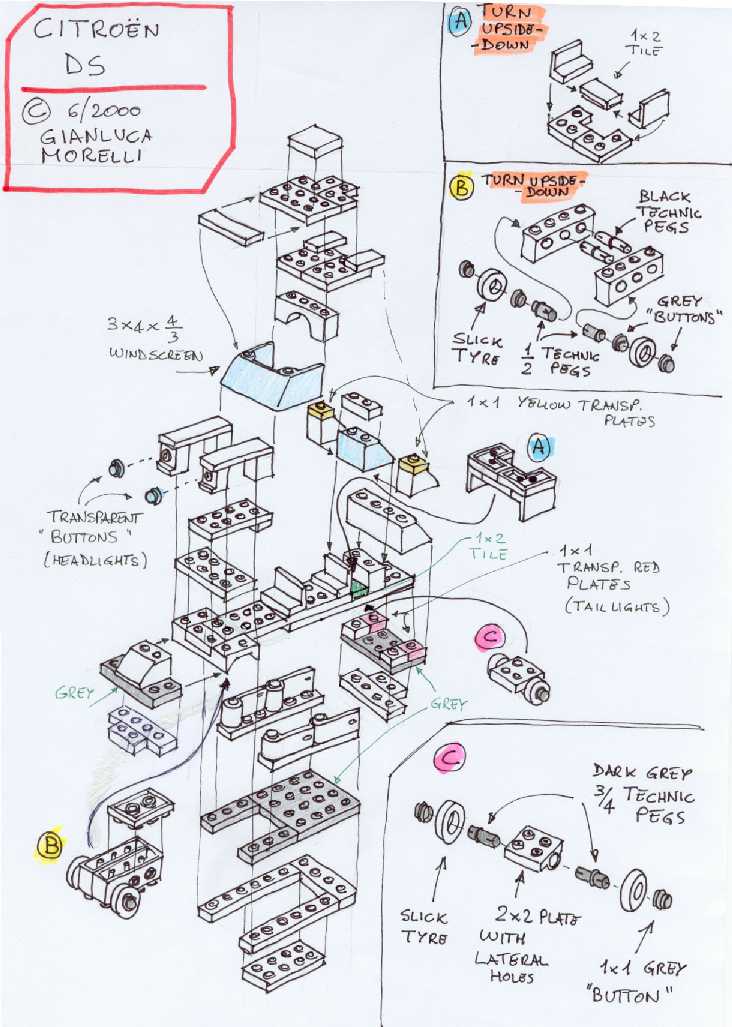 CITROËN
DS
© 6/2000
GIANLUCA
MORELLI
A TURN
UPSIDE-
-DOWN
1x2
TILE
B TURN UPSIDE-
-DOWN
BLACK
TECHNIC
PEGS
SLICK
TYRE
1/2 TECHNIC
PEGS
GREY
"BUTTONS"
3x4x4/3
WINDSCREEN
1x1 YELLOW TRANSP.
PLATES
A
TRANSPARENT
"BUTTONS"
(HEADLIGHTS)
1x2
TILE
1x1
TRANSP. RED
PLATES
(TAIL LIGHTS)
C
GREY
GREY
B
C
DARK GREY
3/4 TECHNIC
PEGS
SLICK
TYRE
2x2 PLATE
WITH
LATERAL
HOLES
1x1 GREY
"BUTTON"